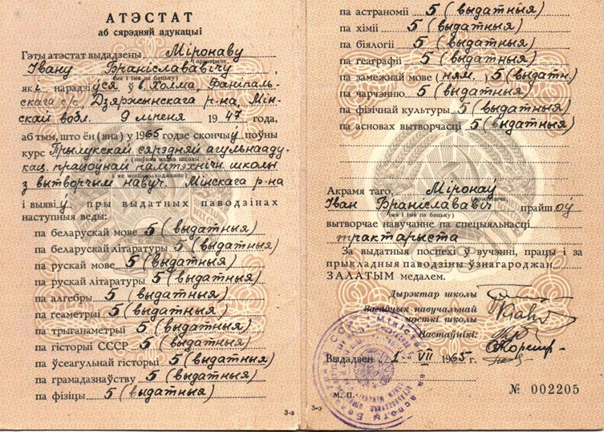 АТЭСТАТ
аб сярэдняй адукацыі
Гэты атэстат выдадзены Міронаву
Івану Браніслававічу
(імя і імя па бацьку)
які нарадзіўся ў в. Холма, Фаніпаль-
скага с/с Дзяржынскага р-на, Мін-
скай вобл. 9 ліпеня 1947 года,
аб тым, што ён (яна) у 1965 годзе скончыў поўны
курс Прылукскай сярэдняй агульнааду-
кац. працоўнай політэхнічн. школы
з вытворчым навуч. Мінскага р-на
і выявіў пры выдатных паводзінах
наступныя веды:
па беларускай мове 5 (выдатныя)
па беларускай літаратуры 5 (выдатныя)
па рускай мове 5 (выдатныя)
па рускай літаратуры 5 (выдатныя)
па алгебры 5 (выдатныя)
па геаметрыі 5 (выдатныя)
па трыганаметрыі 5 (выдатныя)
па гісторыі СССР 5 (выдатныя)
па ўсеагульнай гісторыі 5 (выдатныя)
па грамадазнаўству 5 (выдатныя)
па фізіцы 5 (выдатныя)
3-з
па астраноміі 5 (выдатныя)
па хіміі 5 (выдатныя)
па біялогіі 5 (выдатныя)
па геаграфіі 5 (выдатныя)
па замежнай мове (ням.) 5 (выдатн.)
па чарчэнню 5 (выдатныя)
па фізічнай культуры 5 (выдатныя)
па асновах вытворчасці 5 (выдатныя)
Акрамя таго, Міронаў
Іван Браніслававіч прайшоў
(імя і імя па бацьку)
вытворчае навучанне па спецыяльнасці
трактарыста
За выдатныя поспехі ў вучэнні, працы і за
прыкладныя паводзіны ўзнагароджан
ЗАЛАТЫМ медалем.
Дырэктар школы
Загадчык навучальнай
часткі школы
Настаўнікі:
Выдадзен VII 1965 г.
М. П.
№ 002205
3-з